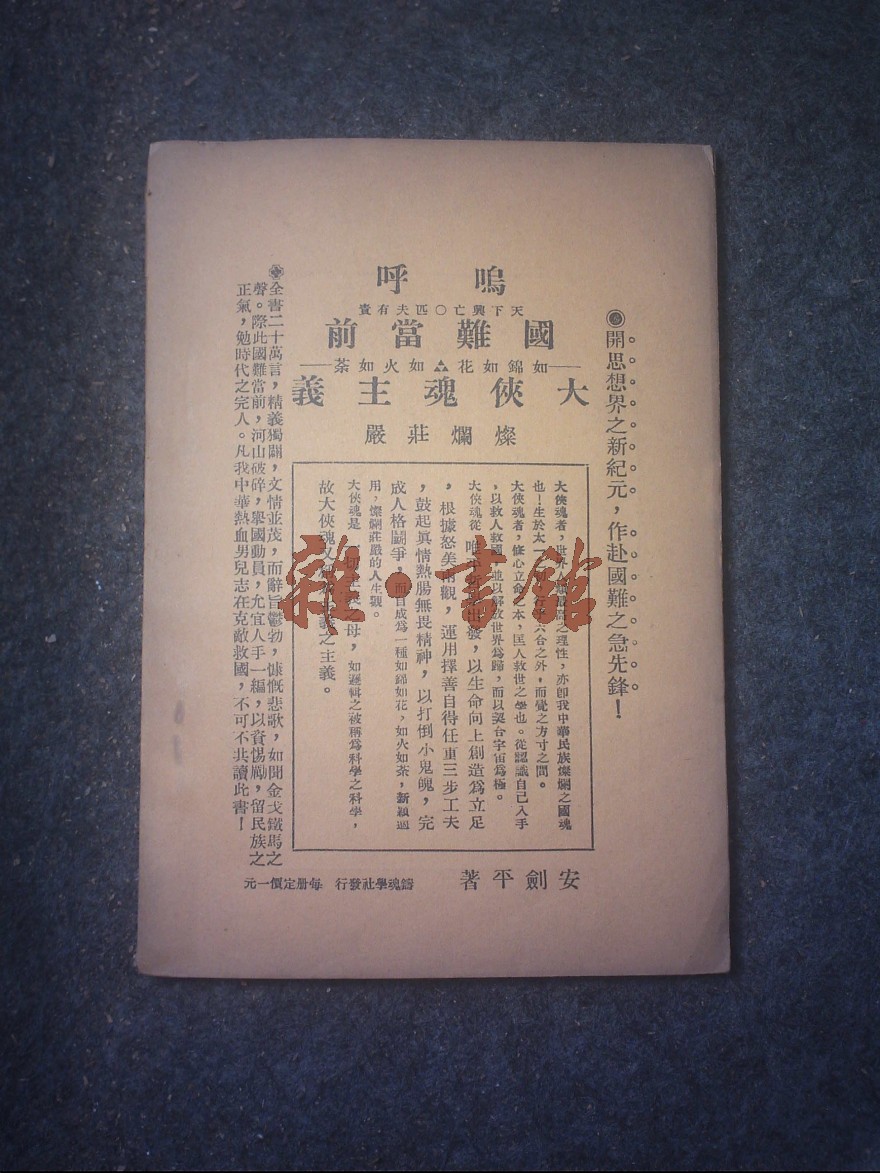 ◉開思想界之新紀元,作赴國難之急先鋒!
嗚呼
天下興亡○匹夫有責
國難當前
——如錦如花⁂如火如荼——
大俠魂主義
燦爛莊嚴
大俠魂者,世界之理性,亦卽我中華民族燦爛之國魂
也!生於太一六合之外,而覺之方寸之間。
大俠魂者,修心立命之本,匡人救世之學也。從認識自己入手
,以救人救國地以解放世界爲歸,而以契合宇宙爲極。
大俠魂從唯出發,以生命向上創造爲立足
,根據怒美觀,運用擇善自得任重三步工夫
,鼓起眞情熱腸無畏精神,以打倒小鬼魄,完
成人格鬪爭,而自成爲一種如錦如花,如火如荼,新穎適
用,燦爛莊嚴的人生觀。
大俠魂是一切主義之母,如邏輯之被稱爲科學之科學,
故大俠魂又主義之主義。
全書二十萬言,精義獨闢,文情並茂,而辭旨鬱勃,慷慨悲歌,如聞金戈鐵馬之
聲。際此國難當前,河山破碎,舉國動員,允宜人手一編,以資惕勵,留民族之
正氣,勉時代之完人。凡我中華熱血男兒志在克敵救國,不可不共讀此書!
安劍平著
鑄魂學社發行 每册定價一元
雜·書館